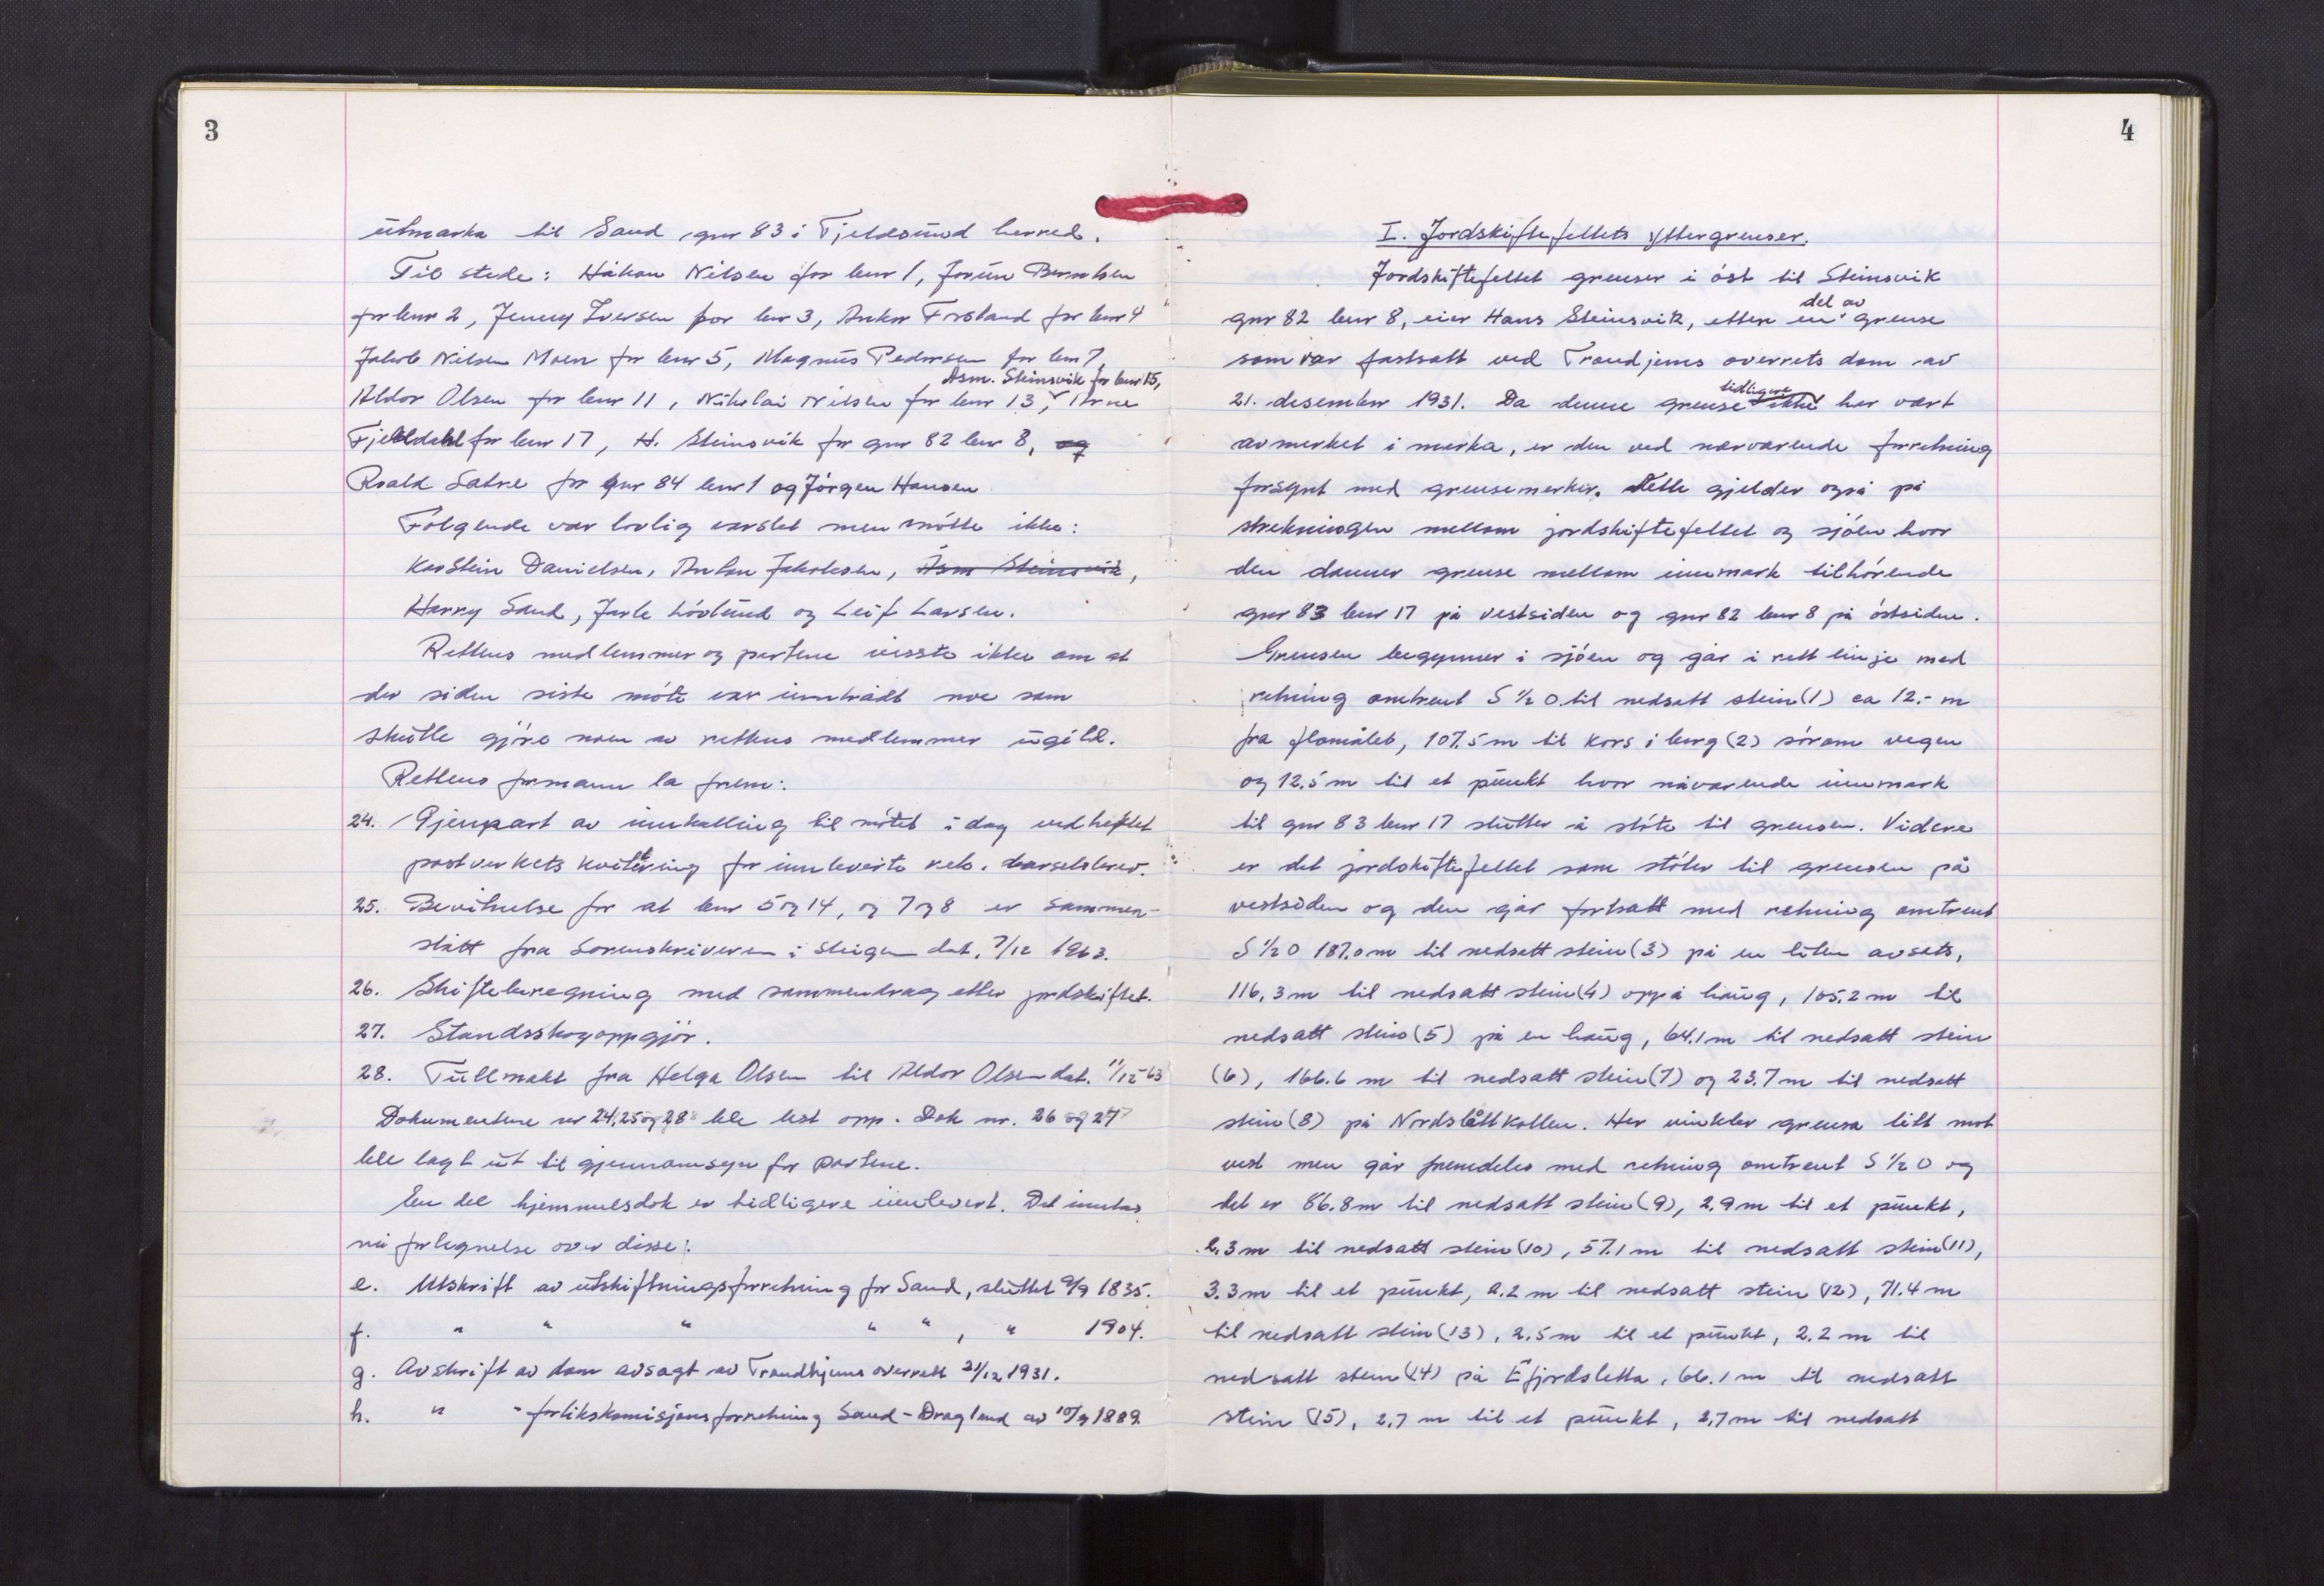 3
utmarka til Sand gnr 83 i Tjeldsund herred.
Til stede: Håkon Nilsen for bnr 1, Jorun Berntsen
for bnr 2, Jenny Iversen for bnr 3, Ankor Frøland for bnr 4
Jakob Nilsen Moen for bnr 5, Magnus Pedersen for bnr 7,
Asm. Steinsvik for bnr 15,
Aldor Olsen for bnr 11, Nikolai Nilsen for bnr 13, Arne
Fjelldahl for bnr 17, H. Steinsvik for gnr 82 bnr 8, og
Roald Sætre for gnr 84 bnr 1 og Jørgen Hansen
Følgende var lovlig varslet men møtte ikke:
Karstein Danielsen, Anton Jakobsen, Asm Steinsvik,
Harry Sand, Jarle Løvlund og Leif Larsen.
Rettens medlemmer og partene visste ikke om at
der siden siste møte var inntrådt noe som
skulle gjøre noen av rettens medlemmer ugild.
Rettens formann la frem:
24. Gjenpart av innkalling til møtet i dag vedheftet
postverkets kvittering for innleverte rek. varselsbrev.
25. Bevitnelse for at bnr 5 og 14, og 7 og 8 er sammen-
slått fra Sorenskriveren i Steigen dat. 7/12 1963.
26. Skifteberegning med sammendrag etter jordskiftet.
27. Standsskogoppgjør.
28. Fullmakt fra Helga Olsen til Aldor Olsen dat. 11/12-63
Dokumentene nr 24, 25 og 28 ble lest opp. Dok nr. 26 og 27
ble lagt ut til gjennomsyn for partene.
En del hjemmelsdok er tidligere innlevert. Det inntas
nå fortegnelse over disse:
e. Utskrift av utskiftningsforretning for Sand, sluttet 9/9 1835.
f. " " " " " , " 1904.
g. Avskrift av dom avsagt av Trondhjems overrett 21/12 1931.
h. " " forlikskomisjonsforretning Sand-Dragland av 10/9 1889.
4
I. Jordskiftefeltets yttergrenser.
Jordskiftefeltet grenser i øst til Steinsvik
del av
gnr 82 bnr 8, eier Hans Steinsvik, etter en grense
som var fastsatt ved Trondjems overrets dom av
tidligere
21. desember 1931. Da denne grense ikke har vært
avmerket i marka, er den ved nærværende forretning
forsynt med grensemerker. Dette gjelder også på
strekningen mellom jordskiftefeltet og sjøen hvor
den danner grense mellom innmark tilhørende
gnr 83 bnr 17 på vestsiden og gnr 82 bnr 8 på østsiden.
Grensen begynner i sjøen og går i rett linje med
retning omtrent S ½ O til nedsatt stein (1) ca 12.- m
fra flomålet, 107.5 m til kors i berg (2) sørom vegen
og 12.5 m til et punkt hvor nåværende innmark
til gnr 83 bnr 17 slutter å støte til grensen. Videre
er det jordskiftefeltet som støter til grensen på
vestsiden og den går fortsatt med retning omtrent
S ½ O 187.0 m til nedsatt stein (3) på en liten avsats,
116,3 m til nedsatt stein (4) oppå haug, 105.2 m til
nedsatt stein (5) på en haug, 64.1 m til nedsatt stein
(6), 166.6 m til nedsatt stein (7) og 23.7 m til nedsatt
stein (8) på Nordslåttkollen. Her vinkler grensa litt mot
vest men går fremdeles med retning omtrent S ½ O og
det er 86.8 m til nedsatt stein (9), 2,9 m til et punkt,
2,3 m til nedsatt stein (10), 57.1 m til nedsatt stein (11),
3.3 m til et punkt, 2.2 m til nedsatt stein (12), 71.4 m
til nedsatt stein (13), 2,5 m til et punkt, 2.2 m til
nedsatt stein (14) på Efjordsletta, 66.1 m til nedsatt
stein (15), 2,7 m til et punkt, 2,7 m til nedsatt